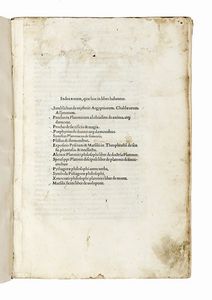 Index eorum, quae hoc in libro habentur.
Iamblichus de mysteriis Aegyptiorum. Chaldæorum
Assyriorum.
Proclus in Platonicum alcibiadem de anima, atq; dæmone.
Proclus de sacrificio & magia.
Porphyrius de diuinis atq; dæmonibus.
Synesius Platonicus de somniis.
Psellus de dæmonibus.
Expositio Prisciani & Marsilii in Theophrastum de sensu, phantasia & intellectu.
Alcinoi Platonici philosophi liber de doctrina Platonis.
Speusippi Platonis discipuli liber de platonis definitionibus.
Pythagoræ philosophi aurea uerba.
Symbola Pithagoræ philosophi.
Xenocratis philosophi platonici liber de morte.
Marsilii ficini liber de uoluptate.